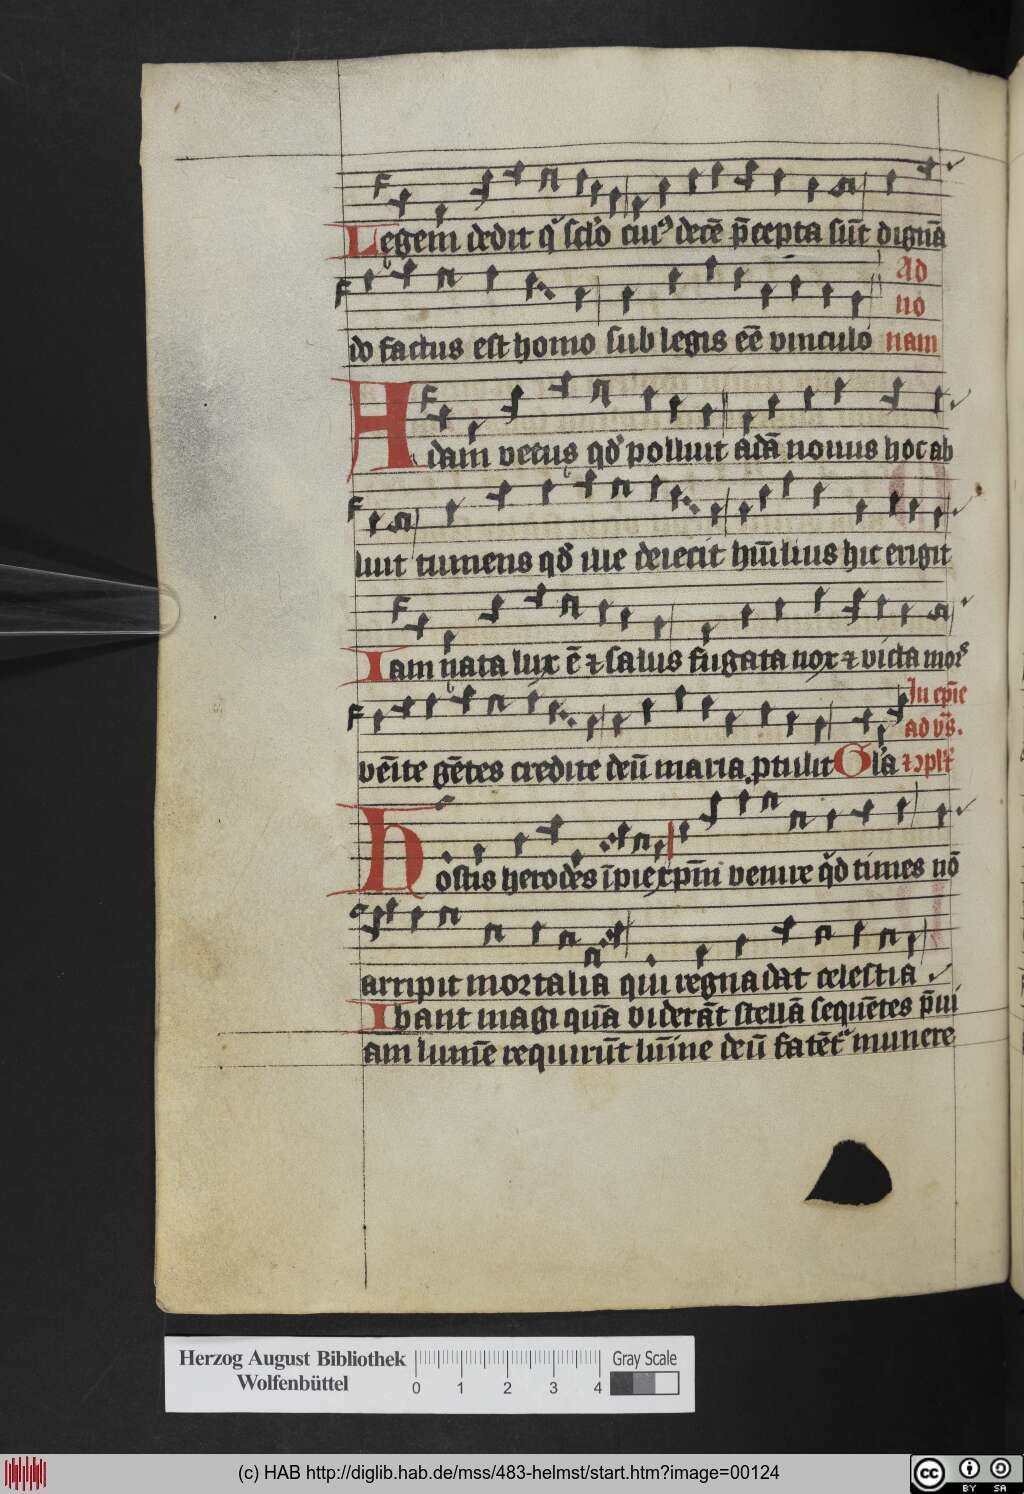 Legem dedit qͥ sclo cuiꝰ decē p̄cepta sūt dignā
do factus est homo sub legis eē vinculo
Ad
no
nam
Adam vetus qd̓ polluit adā nouus hoc ab
luit tumens qd̓ ille deiecit hūilius hic erigit
Iam nata lux ē ⁊ salus fugata nox ⁊ victa mors
In epīe
ad vs̄.
vēite gētes credite deū maria ꝑtulit Gla ⁊ ↄplꝫ
Hostis herodes īpie xp̄m venire qͥd times nō
arripit mortalia qui regna dat celestia
Ibant magi quā viderāt stellā sequētes p̄ui
am lumē requirūt lūine deū fatēt᷑ munere
Herzog August Bibliothek
Wolfenbüttel
0 1 2 3 4
Gray Scale
(c) HAB http://diglib.hab.de/mss/483-helmst/start.htm?image=00124
cc BY SA